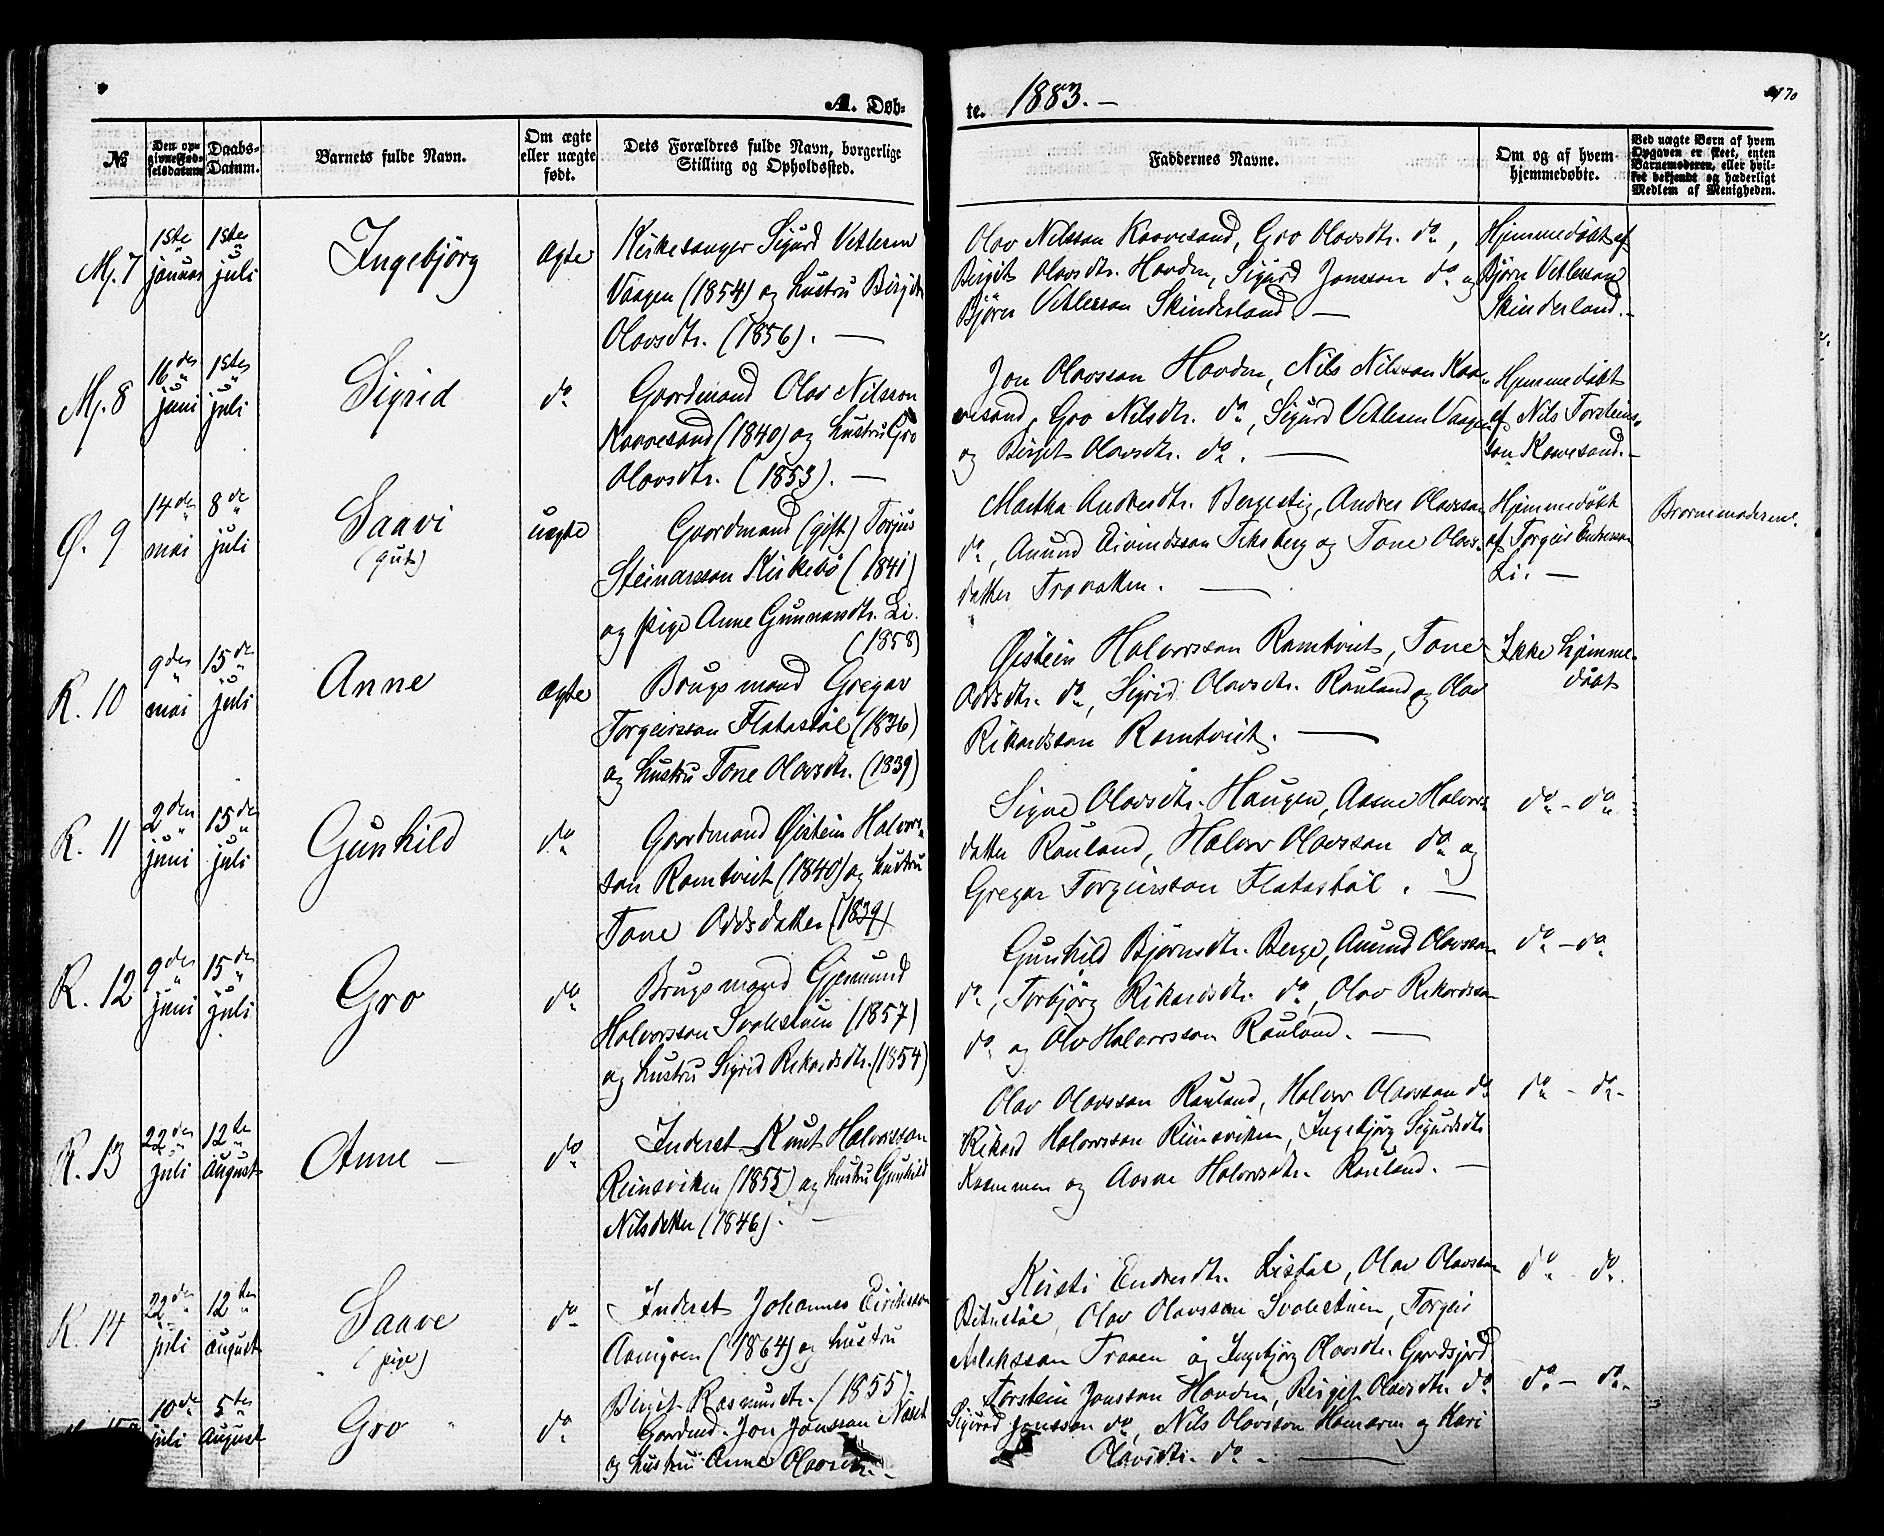 A. Døb-
te. 1883. —
170
№
Den op-
givne Fød-
selsdatum
Daabs-
Datum.
Barnets fulde Navn.
Om ægte
eller uægte
født.
Dets Forældres fulde Navn, borgerlige
Stilling og Opholdssted.
Faddernes Navne.
Om og af hvem
hjemmedøbte.
Ved uægte Børn af hvem
Opgaven er skeet, enten
Barnemoderen, eller hvil-
ket bekjendt og hæderligt
Medlem af Menigheden.
Mj. 7
1ste
januar
1ste
juli
Ingebjörg
ægte
Kirkesanger Sigurd Vetlesen
Vaagen (1854) og hustru Birgit
Olavsdtr. (1856). —
Olav Nilsson Kaavesand, Gro Olavsdtr. do,
Birgit Olavsdtr. Hovden, Sigurd Jonsson do og
Björn Vetlesson Skinderland. —
Hjemmedöbt af
Björn Vetlesson
Skinderland. —
Mj. 8
16de
juni
1ste
juli
Sigrid
do
Gaardmand Olav Nilsson
Kaavesand (1840) og hustru Gro
Olavsdtr. (1853). —
Jon Olavsson Hovden, Nils Nilsson Kaa-
vesand, Gro Nilsdtr. do, Sigurd Vetlesen Vaagen
og Birgit Olavsdtr. do. —
Hjemmedöbt
af Nils Torsteins-
son Kaavesand. —
Ø. 9
14de
mai
8de
juli
Saavi
(gut)
uægte
Gaardmand (gift) Torjus
Steinarsson Kirkebö (1841)
og pige Anne Gunnarsdtr. Li.
(1858)
Martha Andresdtr. Bergestig, Andres Olavsson
do, Aunund Eivindsson og Tone Olavs-
datter Trovatten. —
Hjemmedöbt
af Torgeir Endresson
Li. —
Barnemoderen.
R. 10
9de
mai
15de
juli
Anne
ægte
Brugsmand Gregar
Torgeirsson Flatastöl (1836)
og hustru Tone Olavsdtr. (1839)
Øistein Halvorsson Ramtveit, Tone
Oddsdtr. do, Sigrid Olavsdtr. Rauland og Olav
Rikardsson Ramtveit. —
Ikke hjemme-
döbt
R. 11
2den
juni
15de
juli
Gunhild
do
Gaardmand Øistein Halvors-
son Ramtveit (1840) og hustru
Tone Oddsdatter (1839)
Signe Olavsdtr. Haugen, Aasne Halvors-
datter Rauland, Halvor Olavsson do og
Gregar Torgeirsson Flatastöl. —
do - do
R. 12
9de
juni
15de
juli
Gro
do
Brugsmand Gjermund
Halvorsson Svalestuen (1857)
og hustru Sigrid Rikardsdtr. (1854)
Gunhild Björnsdtr. Berge, Aunund Olavsson
do, Torbjörg Rikardsdtr. do, Olav Rikardsson
do og Olav Halvorsson Rauland. —
do - do
R. 13
22de
juli
12te
august
Anne —
do
Inderst Knut Halvorsson
Reinsviken (1855) og hustru Gunhild
Nilsdatter (1846). —
Olav Olavsson Rauland, Halvor Olavsson do
Rikard Halvorsson Reinsviken, Ingebjörg Sigurdsdtr.
og Aasne Halvorsdtr. Rauland. —
do - do -
R. 14
22de
juli
12te
august
Saave
(pige)
do
Inderst Johannes Eiriksson
(1864) og hustru
Birgit Rasmusdtr. (1855)
Kirsti Endresdtr. Listöl, Olav Olavsson
Bitustöl, Olav Olavsson Svalestuen, Torgeir
Aslaksson Traaen og Ingebjörg Olavsdtr. Gardsjord.
do - do.
10de
juli
5te
august
Gro
do
Gaardmd. Jon Jonsson Næset
og hustru Anne Olavsdtr. -
Torstein Jonsson Hovden, Birgit Olavsdtr. do
Sigurd Jonsson do, Nils Olavsson Hamaren og Kari
Olavsdtr. do. —
do - do -